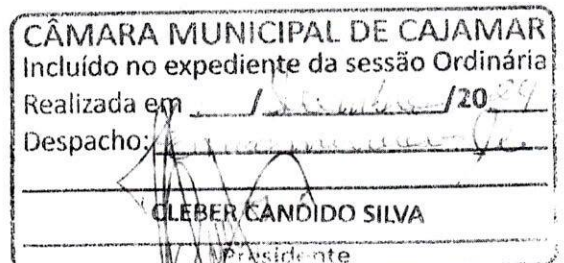 CÂMARA MUNICIPAL DE CAJAMAR
Incluído no expediente da sessão Ordinária
Realizada em / /20
Despacho:
CLEBER CANDIDO SILVA
Presidente